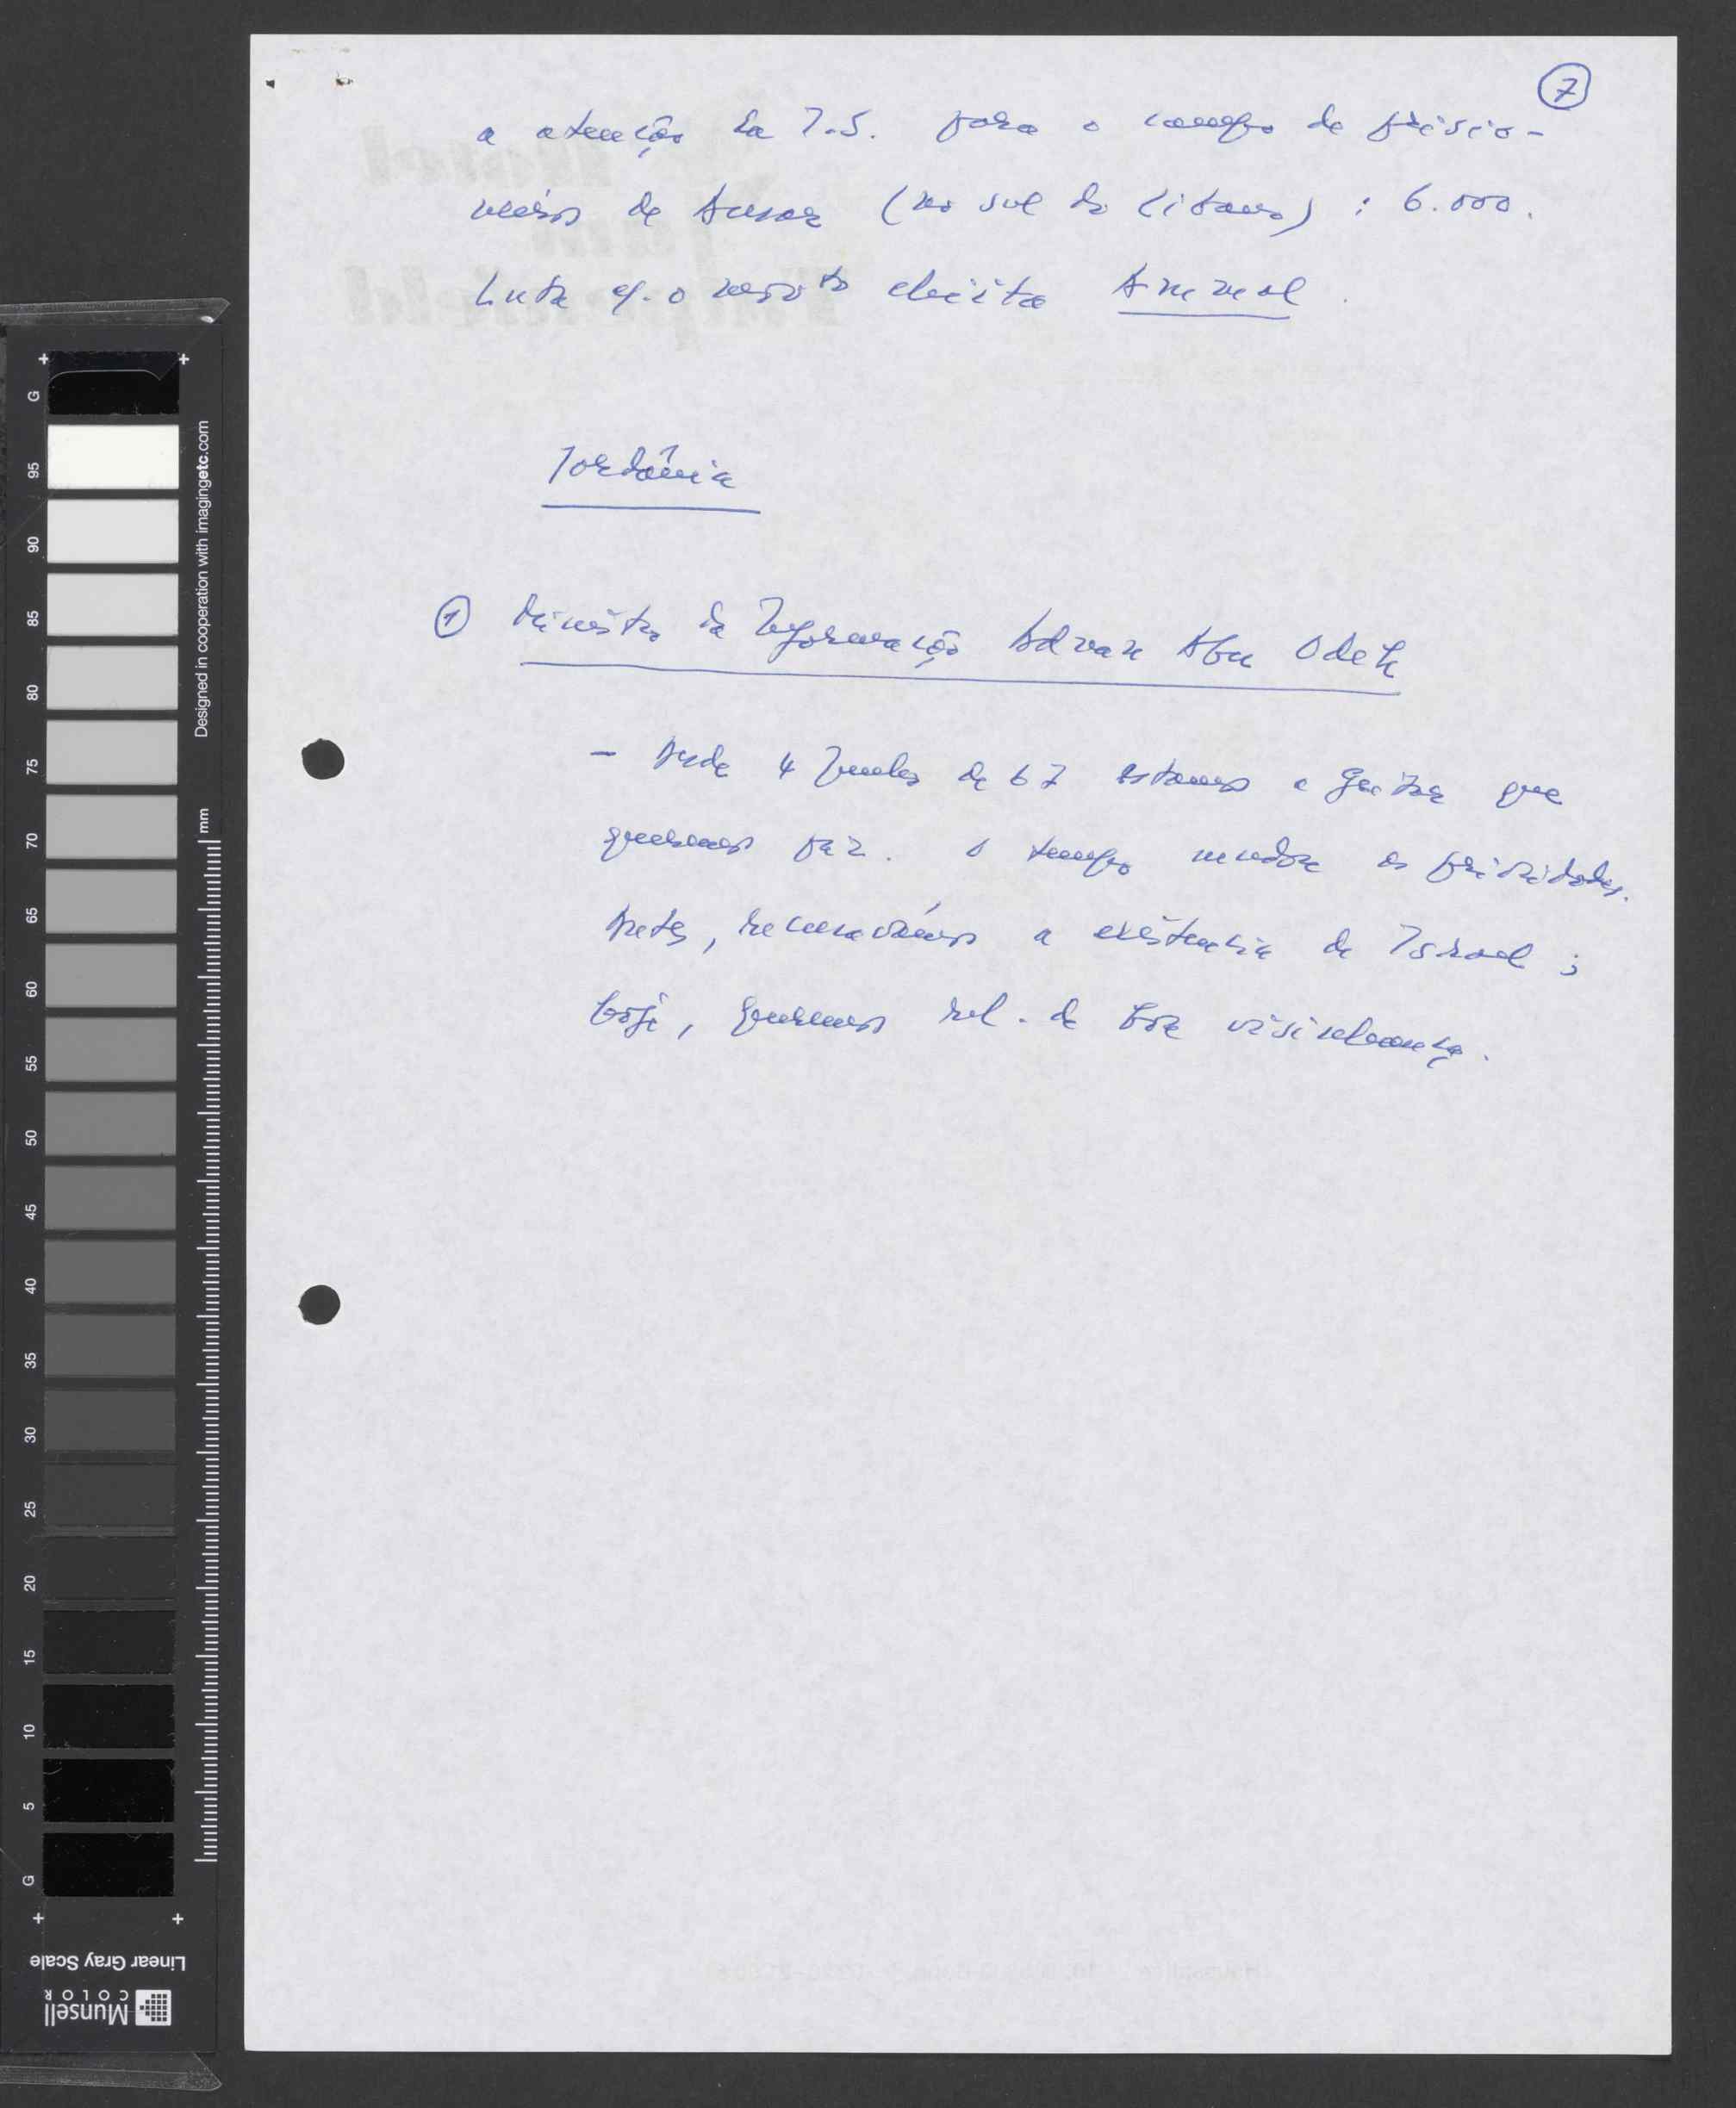 7
a atenção da I.S. para o campo de prisio-
neiros de Ansar (no sul do Líbano) : 6.000.
Luta c/. o movto chiita Ammal.
Jordânia
1 Ministro da Informação Adnan Abu Odeh
- Desde 4 Junho de 67 estamos a gritar que
queremos paz. O tempo mudou as prioridades.
Antes, recusávamos a existência de Israel ;
hoje, queremos rel. de boa vizinhança.
G
95
90
85
80
75
70
65
60
55
50
45
40
35
30
25
20
15
10
5
G
Designed in cooperation with imagingetc.com
mm
Linear Gray Scale
Munsell
COLOR